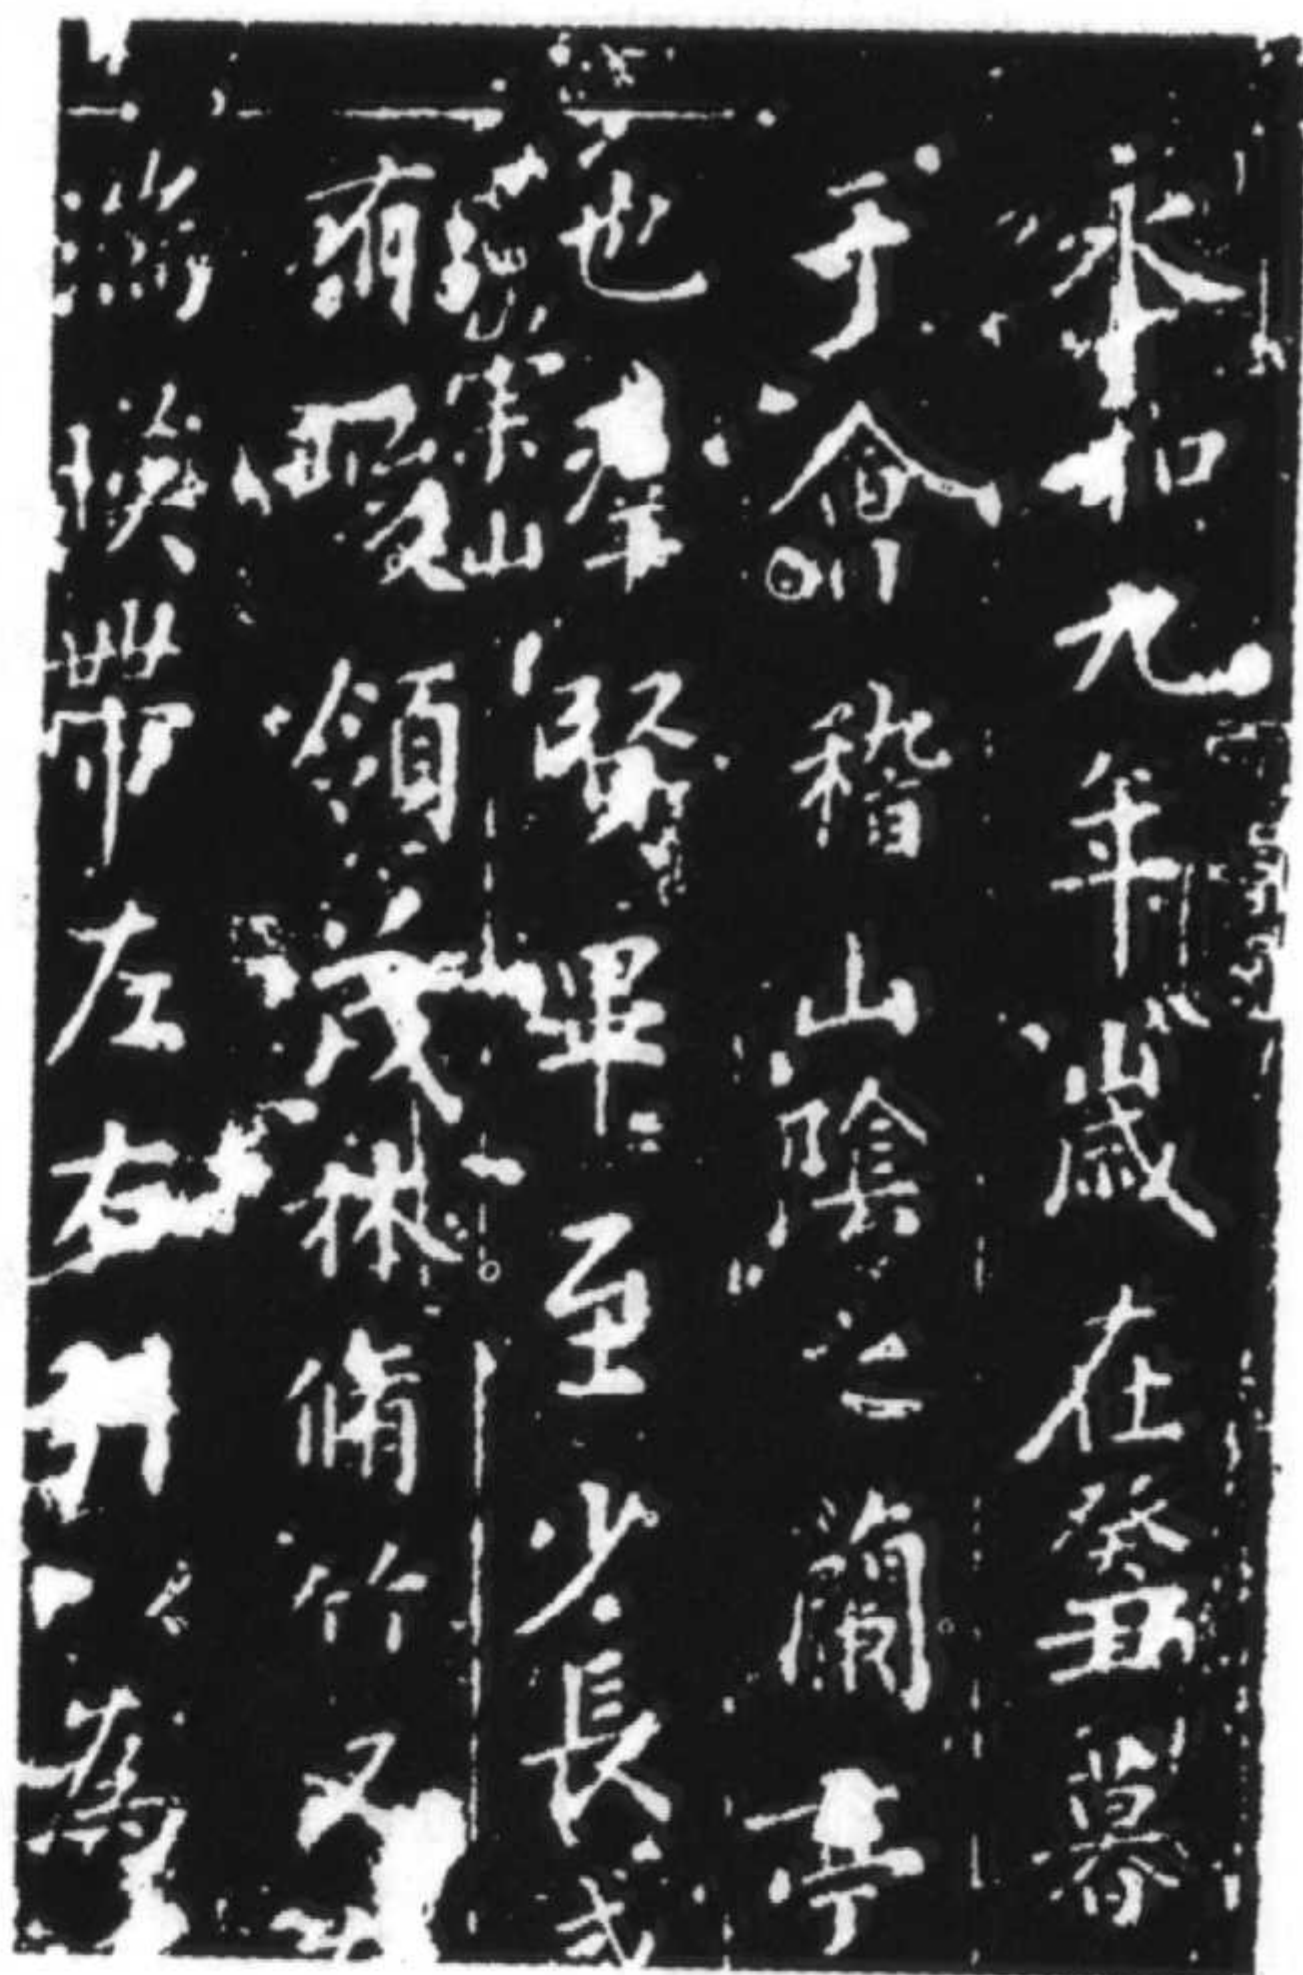 永和九年歲在癸丑暮
于會稽山陰之蘭亭
也羣賢畢至少長咸
崇山
有峻領茂林脩竹又
湍暎帶左右引以為